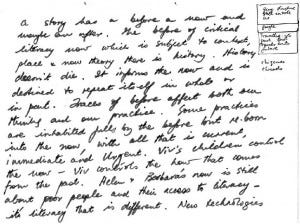 A story has a before a now and
maybe an after. The before of critical
literacy now which is subject to context,
place & new theory there is history. History
doesn't die. It informs the now and is
destined to repeat itself in whole or
in part. Traces of before affect both our
thinking and our practice. Some practices
are inhabited fully by the before but re-born
into the now, with all that is current,
immediate and urgent. Viv's children control
the now - Viv controls the how that comes
from the past. Helen & Barbara's now is still
about poor people and their access to literacy -
its literacy that is different. New technologies